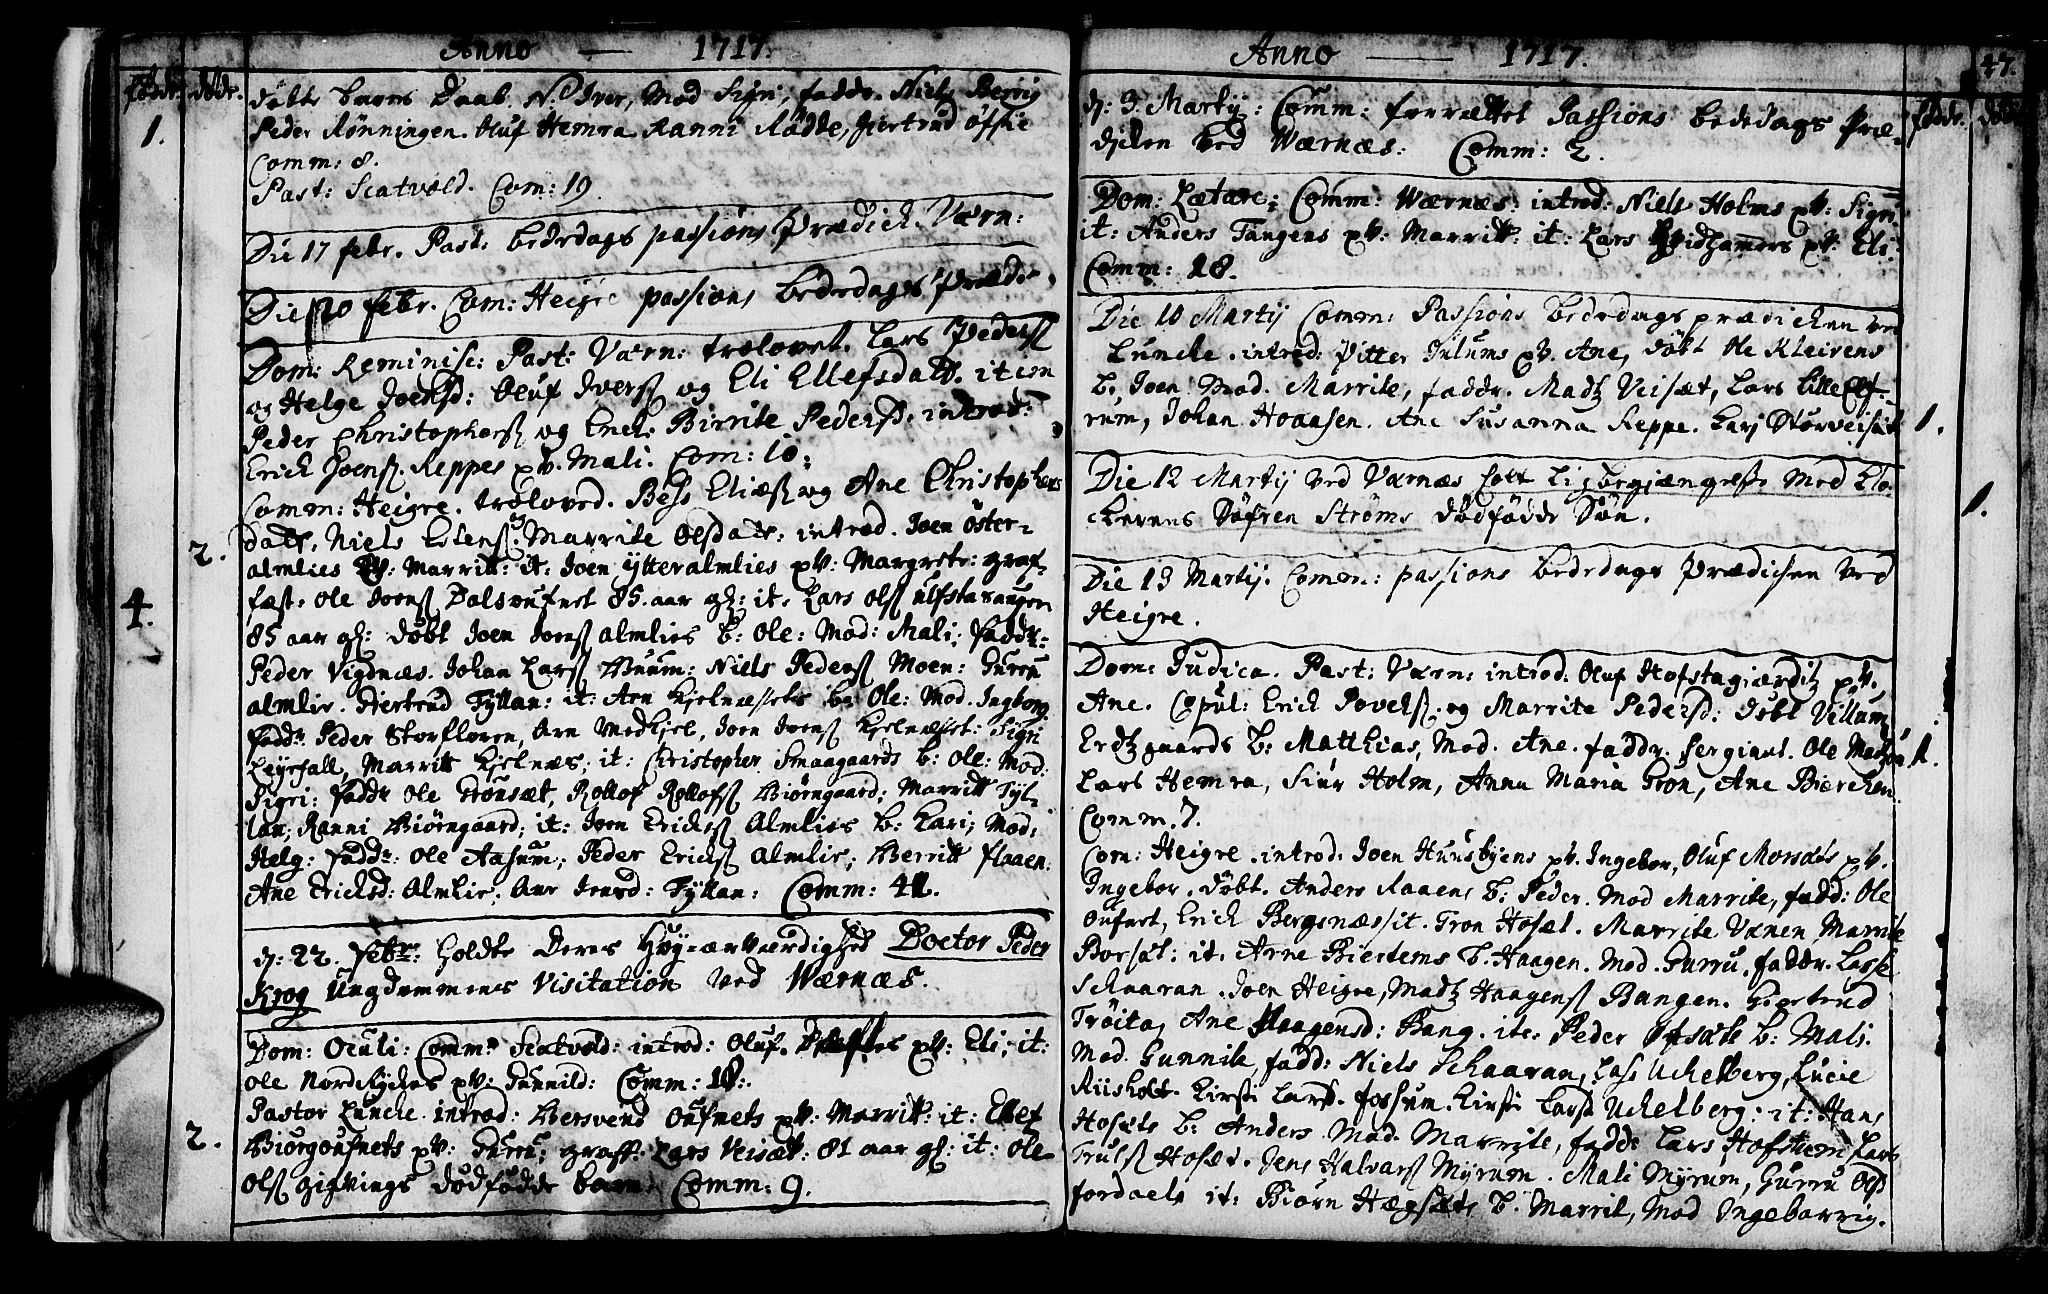 Anno — 1717.
fødde. døde.
døbte barns Daab. N. Iver, Mod Sigri, faddr. Niels Berrig
1.
Peder Rønningen. Oluf Hemra Ranni Rødde, Giertrud
Comm: 8.
Past: Scatvold. Com: 19.
Die 17 febr. Past: bededags passions Prædick. Værn:
Die 20 febr. Com: Heigre passions bededags Præd
Dom: Reminisc: Past: Værn: trolovet. Lars Peders
og Helge Joensd: Oluf Ivers og Eli Ellefsdatt. item
Peder Christophers og Birrite Peders introd:
Erick Joens. Reppes pV. Mali. Com: 10:
Comm: Heigre. troloved. Bess Elies og Ane Christophers
2.
datt. Niels Marrite Olsdatt: introd. Joen Øster-
almlies pV: Marritt: it: Joen ytteralmlies pV: Margrete: graf-
4.
fæst. Ole Joens 85. aar gl: it. Lars Ols
85 aar gl: døbt Joen Joens almlies b: Ole: Mod: Mali: faddr:
Peder Vigdnæs. Johan Lars Niels Peders Moen: Gurru
almlie. Giertrud Fyllan: it: Arn b: Ole: Mod. Ingborg
faddr: Peder Storfloren, Arn Joen Joens Sigri
Marritt Kjelnæs; it: Christopher Smaagaards b: Ole: Mod:
Sigri: faddr Ole Grønsæt, Rollof Rollofs Biørngaard; Marritt Fyl-
lan; Ranni Biørngaard; it: Joen Ericks Almlies b: Kari; Mod;
Helg: faddr: Ole Aasum; Peder Ericks Almlie; Berritt flaaen:
Ane Ericksd: Almlie; Fyllan: Comm: 41.
d: 22. febr: holdte Deres Høyærværdighed Doctor Peder
Krog Ungdommenes Visitation ved Wærnæs.
Dom: Oculi: Comm: Scatvold: introd: Oluf pV: Eli; it:
Ole pV: Gunnild: Comm: 18:
2.
Pastor Luncke. introd: Bersvend Oufnets pV: Marritt: it: Ellef
Biørgoufnets pV: Gurru; graff: Lars Veisæt: 81 aar gl: it: Ole
Ols dødfødde barn. Comm: 9.
Anno — 1717.
47.
fødde. døde
d: 3 Martij: Comm: forrættet Passions bededags Præ-
diken ved Wærnæs: Comm: 2.
Dom: Lætare; Comm: Wærnæs: introd: Niels Holms pV: Sigri
it: Anders Tangens pV: Marritt: it: Lars pV: Eli:
Comm: 18.
Die 10 Martij Comm: Passions bededags prædicken ved
Luncke. introd: Pitter pV. Ane, døbt Ole Kleivens
b. Joen Mod. Marrite, faddr. Madtz Veisæt, Lars Lille
1.
rum, Johan Hoaasen. Ane Susanna Reppe. Størveisæt
Die 12 Martij ved Værnæs holt Ligbegiængelse med Klo-
1.
ckerens Søfren Strøms dødfødde Søn.
Die 13 Martij. Comm: passions bededags Prædicken ved
Heigre.
Dom: Judica. Past: Værn: introd: Oluf pV.
Ane. Copul: Erick Povels og Marrite Pedersd: døbt Villum
1.
b: Matthias, Mod. Ane. faddr. Sergiant. Ole
Lars Hemra, Siur Holm, Anna Maria Tron, Ane
Comm. 7.
Com: Heigre. introd: Joen Huusbyens pV. Ingebor, Oluf Morsets pV.
Ingebor. døbt. Anders Raaens b: Peder. Mod Marrite, fadd: Ole
Oufnet, Erick Bergsnæs it. Tron Hofæt. Marrite Vænen, Marrite
Borsæt: it: Arne Bierkems b. Haagen. Mod. Gurru. faddr. Lasse
Schaaran. Joen Heigre, Madtz Haagens Bangen. Giertrud
Trøita, Ane Haagensd: Bang. ite. Peder b: Mali.
Mod. Gunnile, fadd: Niels Schaaran, Uchelberg, Lucie
Riisholt. Kirsti Larsd. fossum. Kirsti Larsd Uchelberg: it: Hans
Hofets b: Anders. Mod. Marrite, fadd: Lars Lars
Truls Hofet. Jens Halvars Myrum. Mali Myrum, Gurru Olsd
fordaels it: Biørn b. Marrit, Mod Ingeborrig.